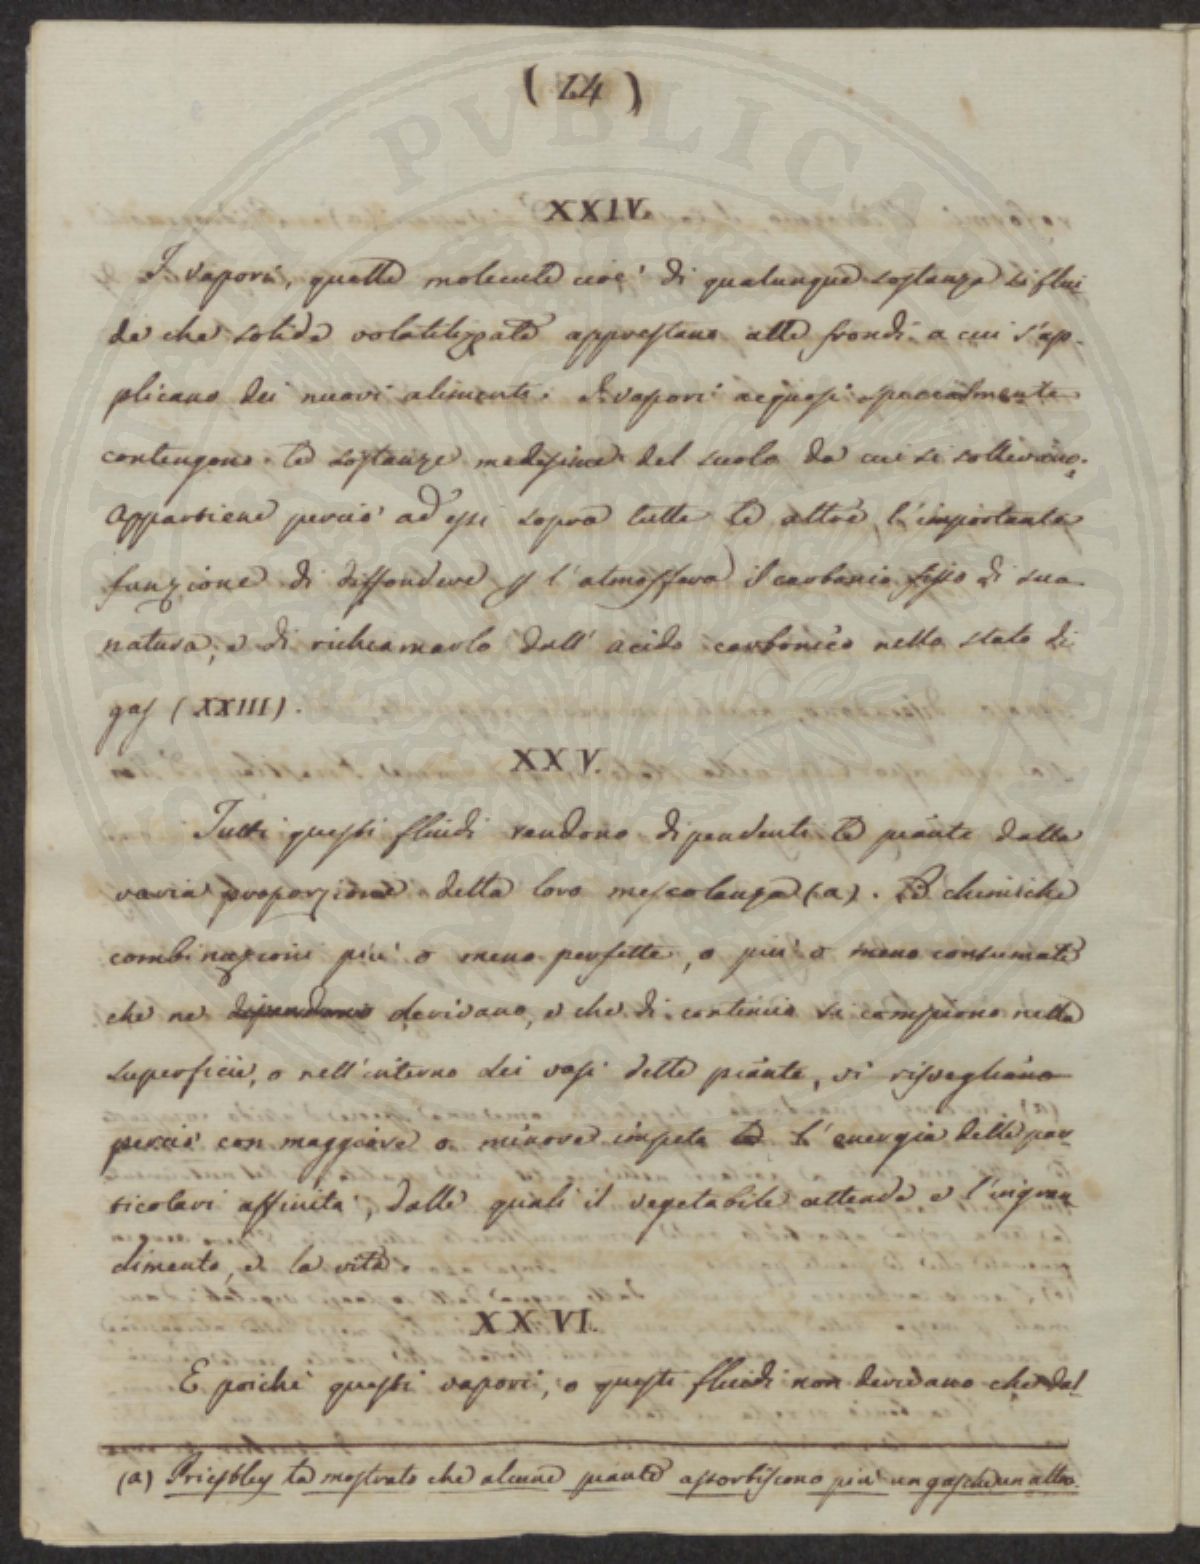 ( 24 )
XXIV.
I vapori, quelle molecule cioè di qualunque sostanza sì flui
da che solida volatilizzate apprestano alle frondi a cui s'ap-
plicano dei nuovi alimenti. I vapori acquosi specialmente
contengono le sostanze medesime del suolo da cui si sollevano.
Appartiene perciò ad essi sopra tutte le altre l'importante
funzione di diffondere p l'atmosfera il carbonio fisso di sua
natura, e di richiamarlo dall' acido carbonico nello stato di
gas (XXIII).
XXV.
Tutti questi fluidi rendono dipendenti le piante dalla
varia proporzione della loro mescolanza (a). Le chimiche
combinazioni più o meno perfette, o più o meno consumate
che ne dipendono derivano, e che di continuo si compiono nella
superficie, o nell'interno dei vasi delle piante, vi risvegliano
perciò con maggiore o minore impeto l'energia delle par
ticolari affinità, dalle quali il vegetabile attende e l'ingran
dimento, e la vita.
XXVI.
E poichè questi vapori, o questi fluidi non derivano che dal
(a) Priestley ha mostrato che alcune piante assorbiscono più un gas che un altro.
PUBLICA